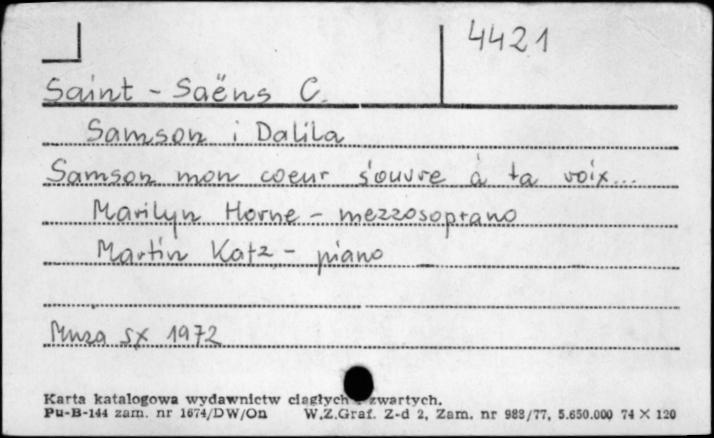 4421
Saint-Saëns C.
Samson i Dalila
Samson mon coeur s'ouvre à ta voix...
Marilyn Horne - mezzosoprano
Martin Katz - piano
Muza sx 1972
Karta katalogowa wydawnictw ciągłych i zwartych.
Pu-B-144 zam. nr 1674/DW/On W.Z.Graf. Z-d 2, Zam. nr 983/77, 5.650.000 74 X 120